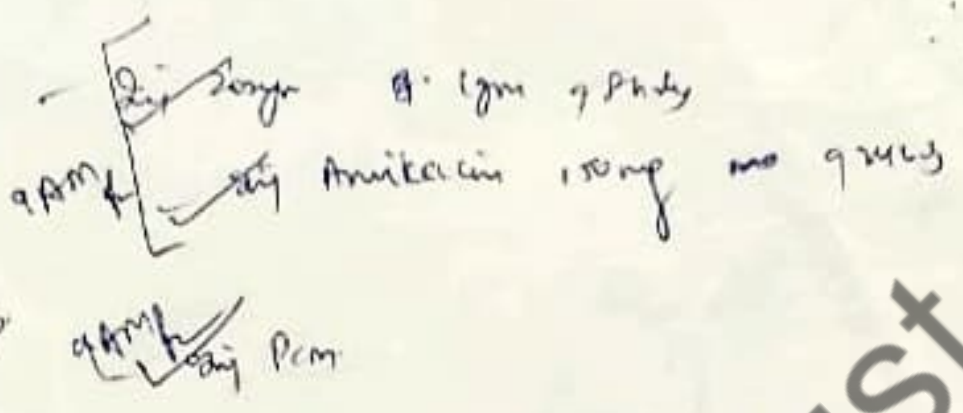 Inj 1gm q 8hrly
9AM Inj Amikacin 150mg q 24hrly
9AM Inj PCM
st